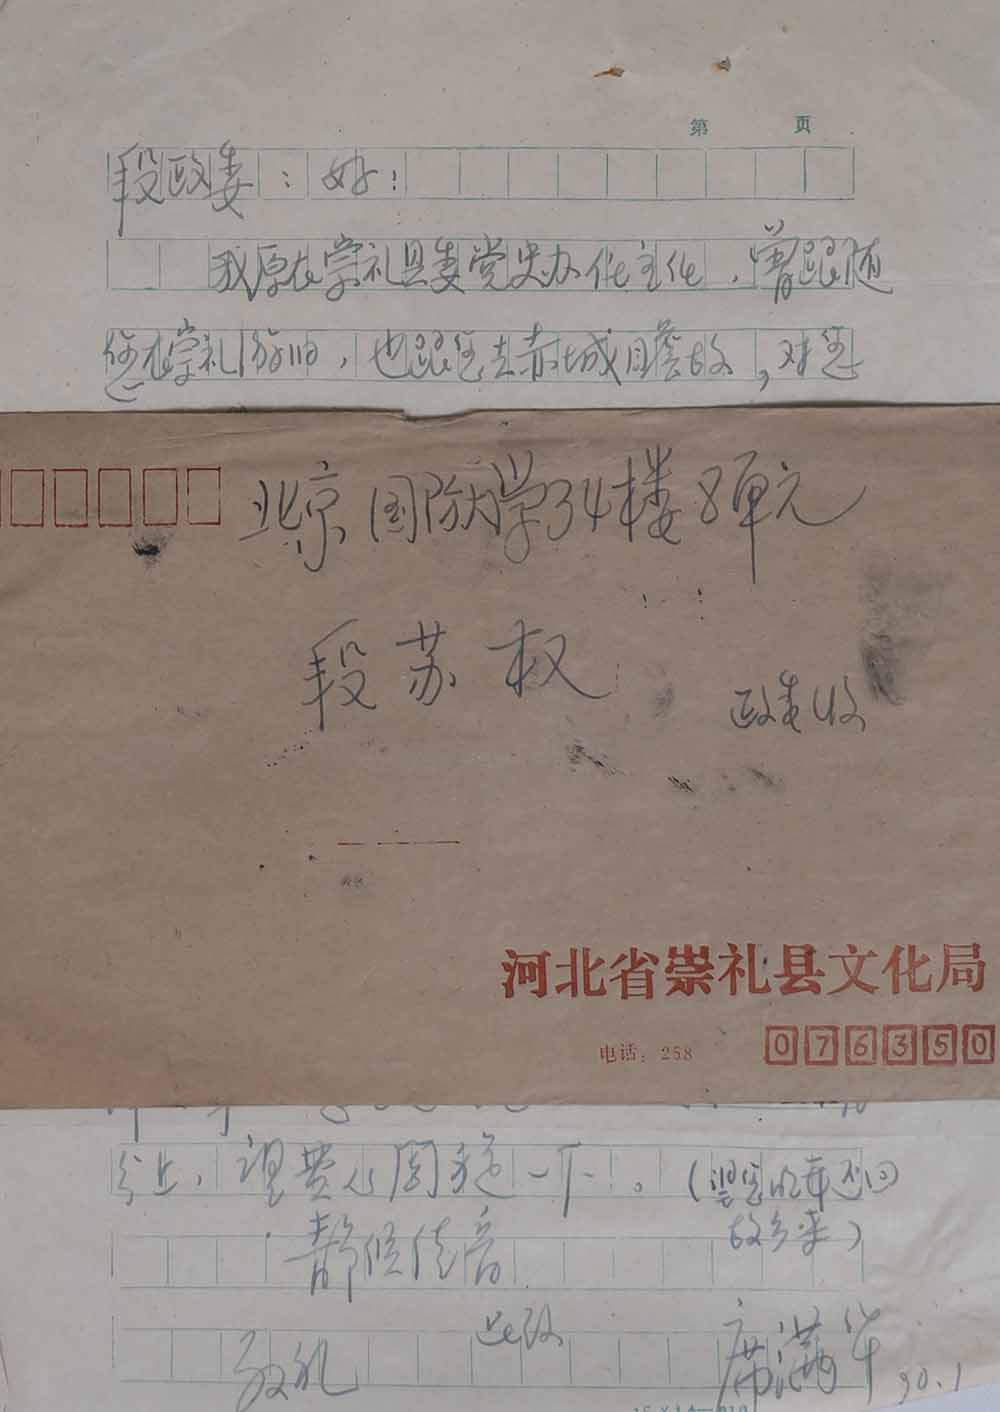 第 页
段政委：好！
我原在崇礼县委党史办任主任，曾跟随
您在崇礼 ，也跟您去赤城 ，对您
北京国防大学34楼8单元
段苏权
政委收
河北省崇礼县文化局
电话：258
076350
分上，望费心周旋一下。（望您 还回
故乡来）
静候佳音
此致
敬礼
席满华
90.1